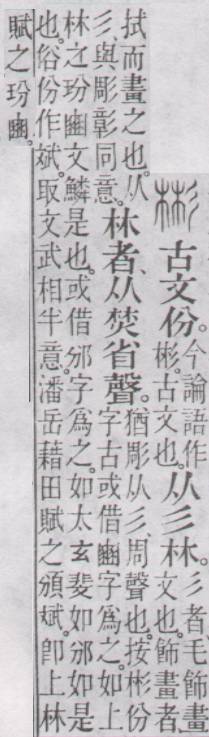 彬 古文份。今論語作彬。古文也。从彡林。彡者、毛飾畫文也。飾畫者、
拭而畫之也。从彡、與彫彰同意。林者、从焚省聲。猶彫从彡、周聲也。按彬份字古或借豳字爲之。如上
林之玢豳文鱗是也。或借邠字爲之。如太玄斐如邠如是也。俗份作斌。取文武相半意。潘岳藉田賦之頒斌。卽上林
賦之玢豳。